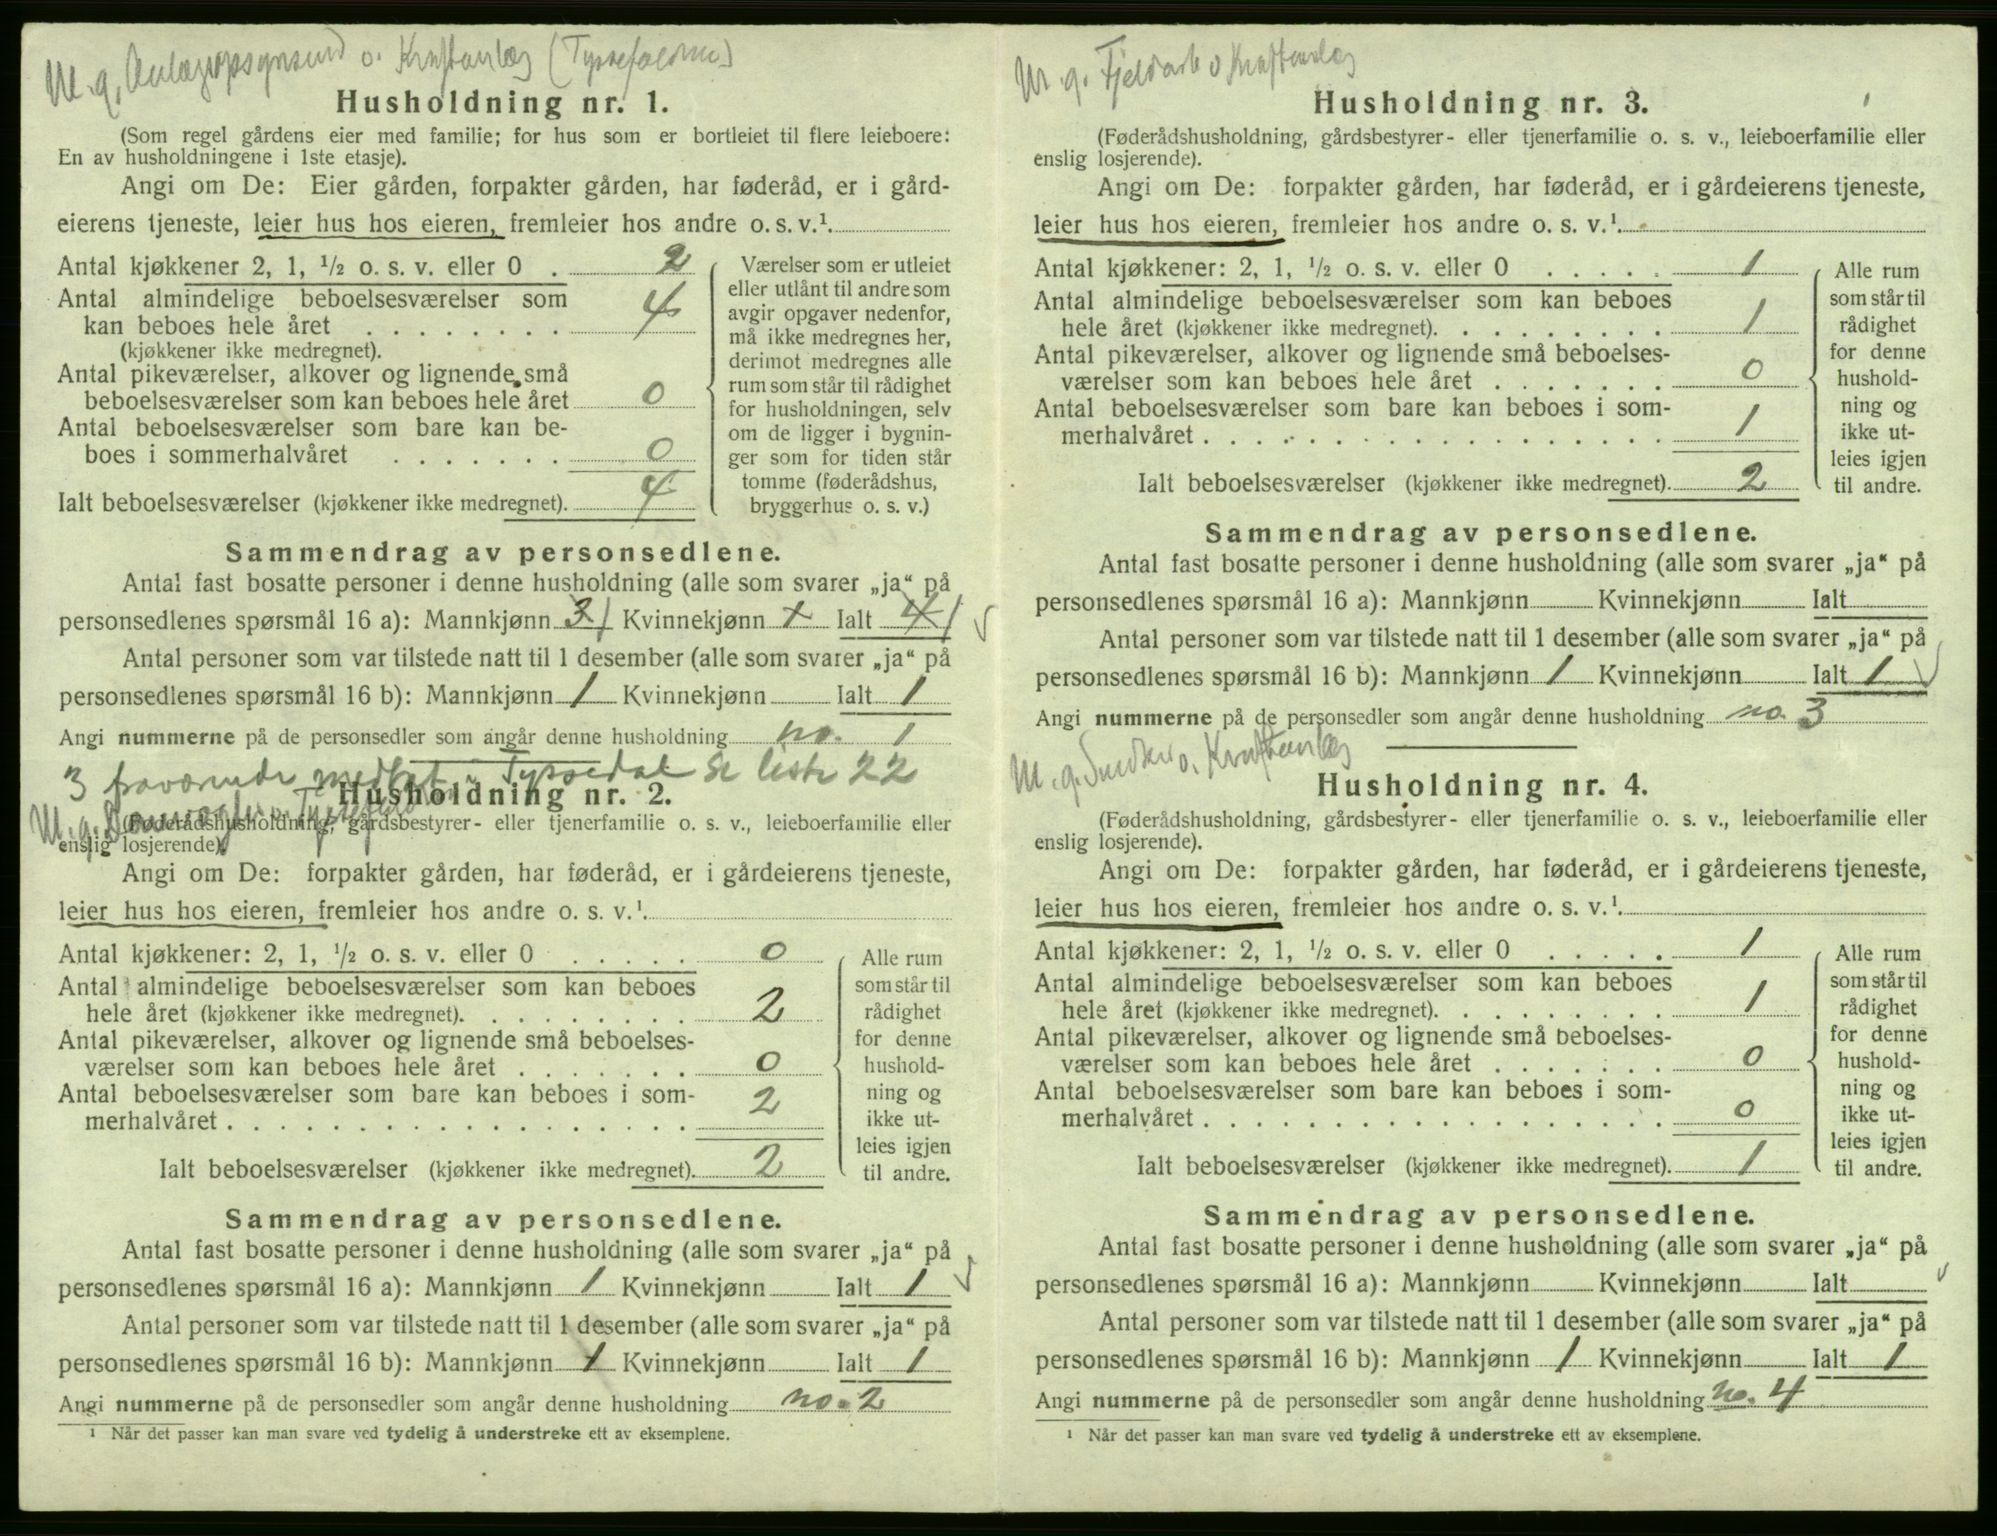 M. g. o. Kraftanlæg (Tyssefaldene)
Husholdning nr. 1.
(Som regel gårdens eier med familie; for hus som er bortleiet til flere leieboere:
En av husholdningene i 1ste etasje).
Angi om De: Eier gården, forpakter gården, har føderåd, er i gård-
eierens tjeneste, leier hus hos eieren, fremleier hos andre o. s. v.¹
Antal kjøkkener 2, 1, ½ o. s. v. eller 0 . 2
Antal almindelige beboelsesværelser som
kan beboes hele året . . . . . . . . 4
(kjøkkener ikke medregnet).
Antal pikeværelser, alkover og lignende små
beboelsesværelser som kan beboes hele året 0
Antal beboelsesværelser som bare kan be-
boes i sommerhalvåret . . . . . . . 0
Ialt beboelsesværelser (kjøkkener ikke medregnet). 4
Værelser som er utleiet
eller utlånt til andre som
avgir opgaver nedenfor,
må ikke medregnes her,
derimot medregnes alle
rum som står til rådighet
for husholdningen, selv
om de ligger i bygnin-
ger som for tiden står
tomme (føderådshus,
bryggerhus o. s. v.)
Sammendrag av personsedlene.
Antal fast bosatte personer i denne husholdning (alle som svarer „ja“ på
personsedlenes spørsmål 16 a): Mannkjønn 3 1 Kvinnekjønn 1 Ialt 4 1
Antal personer som var tilstede natt til 1 desember (alle som svarer „ja“ på
personsedlenes spørsmål 16 b): Mannkjønn 1 Kvinnekjønn Ialt 1
Angi nummerne på de personsedler som angår denne husholdning no. 1
3 fraværende medtat i Tyssedal Se liste 22
Husholdning nr. 2.
M. g.
(Føderådshusholdning, gårdsbestyrer- eller tjenerfamilie o. s. v., leieboerfamilie eller
enslig losjerende).
Angi om De: forpakter gården, har føderåd, er i gårdeierens tjeneste,
leier hus hos eieren, fremleier hos andre o. s. v.¹
Antal kjøkkener: 2, 1, ½ o. s. v. eller 0 . . . . . 0
Antal almindelige beboelsesværelser som kan beboes
hele året (kjøkkener ikke medregnet). . . . . . . . . 2
Antal pikeværelser, alkover og lignende små beboelses-
værelser som kan beboes hele året . . . . . . . 0
Antal beboelsesværelser som bare kan beboes i som-
merhalvåret . . . . . . . . . . . . . . . . . . 2
Ialt beboelsesværelser (kjøkkener ikke medregnet). 2
Alle rum
som står til
rådighet
for denne
hushold-
ning og
ikke ut-
leies igjen
til andre.
Sammendrag av personsedlene.
Antal fast bosatte personer i denne husholdning (alle som svarer „ja“ på
personsedlenes spørsmål 16 a): Mannkjønn 1 Kvinnekjønn Ialt 1
Antal personer som var tilstede natt til 1 desember (alle som svarer „ja“ på
personsedlenes spørsmål 16 b): Mannkjønn 1 Kvinnekjønn Ialt 1
Angi nummerne på de personsedler som angår denne husholdning no. 2
¹ Når det passer kan man svare ved tydelig å understreke ett av eksemplene.
M. g. Fjeldarb o Kraftanlæg
Husholdning nr. 3.
(Føderådshusholdning, gårdsbestyrer- eller tjenerfamilie o. s. v., leieboerfamilie eller
enslig losjerende).
Angi om De: forpakter gården, har føderåd, er i gårdeierens tjeneste,
leier hus hos eieren, fremleier hos andre o. s. v.¹
Antal kjøkkener: 2, 1, ½ o. s. v. eller 0 . . . . . 1
Antal almindelige beboelsesværelser som kan beboes
hele året (kjøkkener ikke medregnet). . . . . . . . . 1
Antal pikeværelser, alkover og lignende små beboelses-
værelser som kan beboes hele året . . . . . . . 0
Antal beboelsesværelser som bare kan beboes i som-
merhalvåret . . . . . . . . . . . . . . . . . . 1
Ialt beboelsesværelser (kjøkkener ikke medregnet). 2
Alle rum
som står til
rådighet
for denne
hushold-
ning og
ikke ut-
leies igjen
til andre.
Sammendrag av personsedlene.
Antal fast bosatte personer i denne husholdning (alle som svarer „ja“ på
personsedlenes spørsmål 16 a): Mannkjønn Kvinnekjønn Ialt
Antal personer som var tilstede natt til 1 desember (alle som svarer „ja“ på
personsedlenes spørsmål 16 b): Mannkjønn 1 Kvinnekjønn Ialt 1
Angi nummerne på de personsedler som angår denne husholdning no. 3
M. g. o. Kraftanlæg
Husholdning nr. 4.
(Føderådshusholdning, gårdsbestyrer- eller tjenerfamilie o. s. v., leieboerfamilie eller
enslig losjerende).
Angi om De: forpakter gården, har føderåd, er i gårdeierens tjeneste,
leier hus hos eieren, fremleier hos andre o. s. v.¹
Antal kjøkkener: 2, 1, ½ o. s. v. eller 0 . . . . . 1
Antal almindelige beboelsesværelser som kan beboes
hele året (kjøkkener ikke medregnet). . . . . . . . . 1
Antal pikeværelser, alkover og lignende små beboelses-
værelser som kan beboes hele året . . . . . . . 0
Antal beboelsesværelser som bare kan beboes i som-
merhalvåret . . . . . . . . . . . . . . . . . . 0
Ialt beboelsesværelser (kjøkkener ikke medregnet). 1
Alle rum
som står til
rådighet
for denne
hushold-
ning og
ikke ut-
leies igjen
til andre.
Sammendrag av personsedlene.
Antal fast bosatte personer i denne husholdning (alle som svarer „ja“ på
personsedlenes spørsmål 16 a): Mannkjønn Kvinnekjønn Ialt
Antal personer som var tilstede natt til 1 desember (alle som svarer „ja“ på
personsedlenes spørsmål 16 b): Mannkjønn 1 Kvinnekjønn Ialt 1
Angi nummerne på de personsedler som angår denne husholdning no. 4
¹ Når det passer kan man svare ved tydelig å understreke ett av eksemplene.